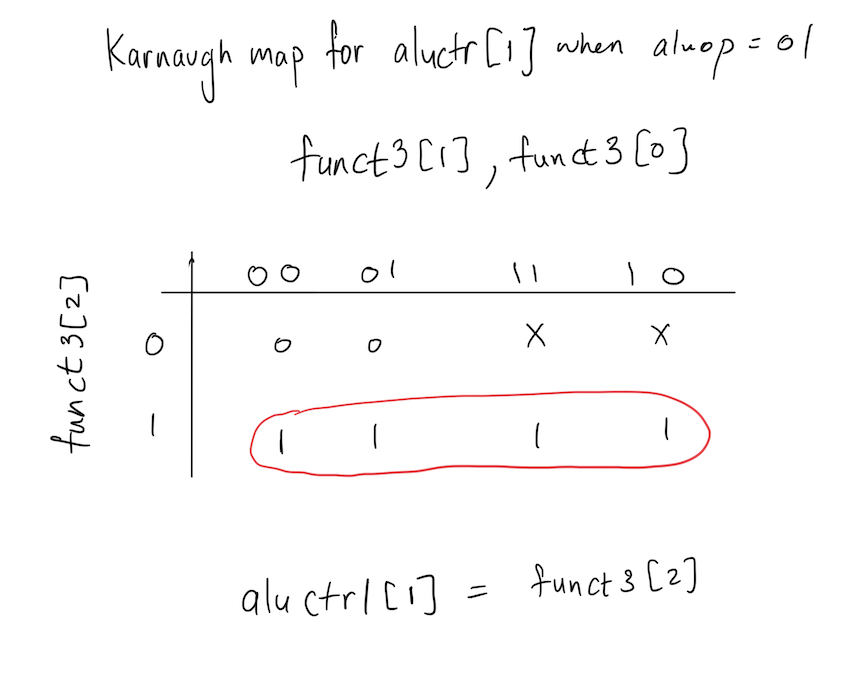 Karnaugh map for aluctr[1] when aluop = 01
funct3[1], funct3[0]
funct3[2]
00 01 11 10
0 0 0 X X
1 1 1 1 1
aluctrl[1] = funct3[2]